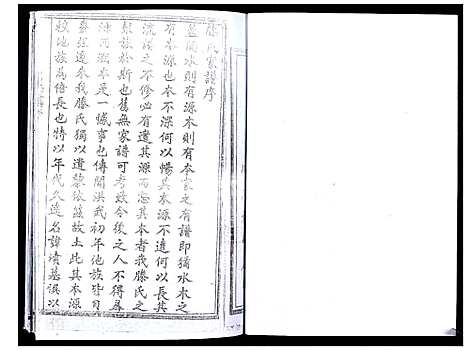 滕氏家譜序
蓋聞水則有源木則有本家之有譜即猶水木之
有本源也本不深何以暢其本源不遠何以長其
流溪之不修必有遺其源而忘其本者我滕氏之
族於斯也舊無家譜可考致令後之人不得尋
河溯本是一憾事也傳聞洪武初年他族皆自
遷來我滕氏獨以遺黎依舊故土此其本源
較他族為倍長也特以年代久遠名諱墳墓誤以